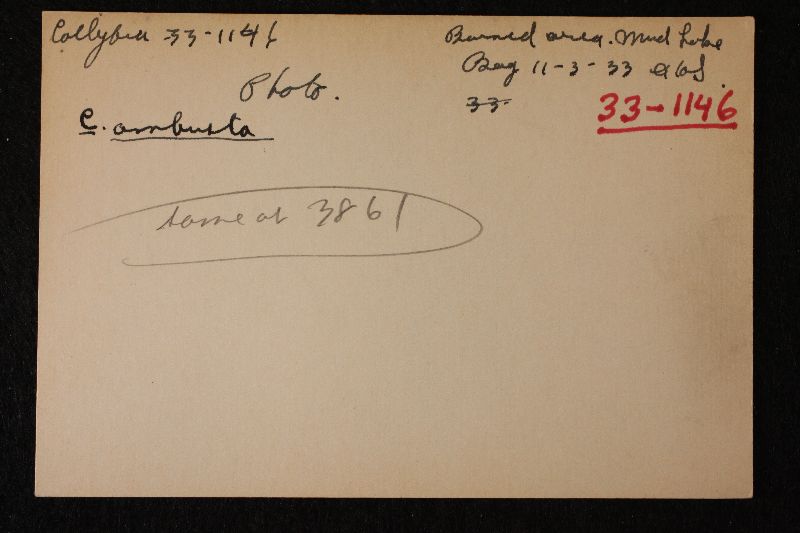 Collybia 33-1146
Burned area. Mud Lake
Bog 11-3-33 AHS.
Photo.
33-
33-1146
C. ambusta
same as 3861